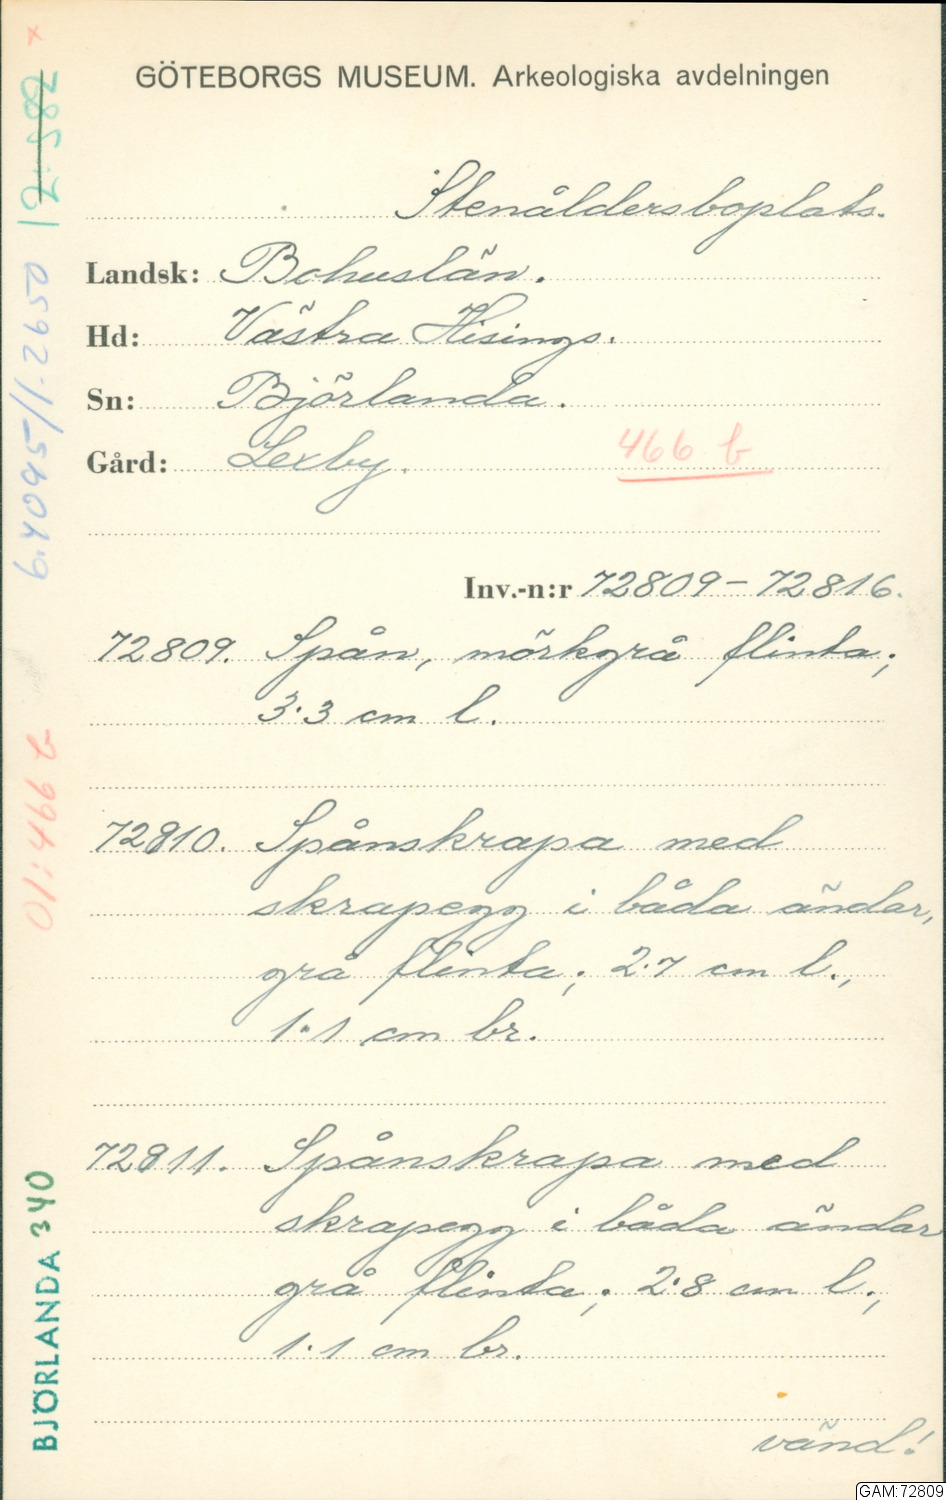 GÖTEBORGS MUSEUM. Arkeologiska avdelningen
Stenåldersboplats.
Landsk: Bohuslän.
Hd: Västra Hisings.
Sn: Björlanda.
Gård: Lexby.
466 b
Inv.-n:r 72809-72816.
72809. Spån, mörkgrå flinta;
3.3 cm l.
72810. Spånskrapa med
skrapegg i båda ändar,
grå flinta; 2.7 cm l.,
1.1 cm br.
72811. Spånskrapa med
skrapegg i båda ändar
grå flinta; 2.8 cm l.,
1.1 cm br.
vänd!
BJÖRLANDA 340
01:466 b
6.4095/1.2650
GAM:72809